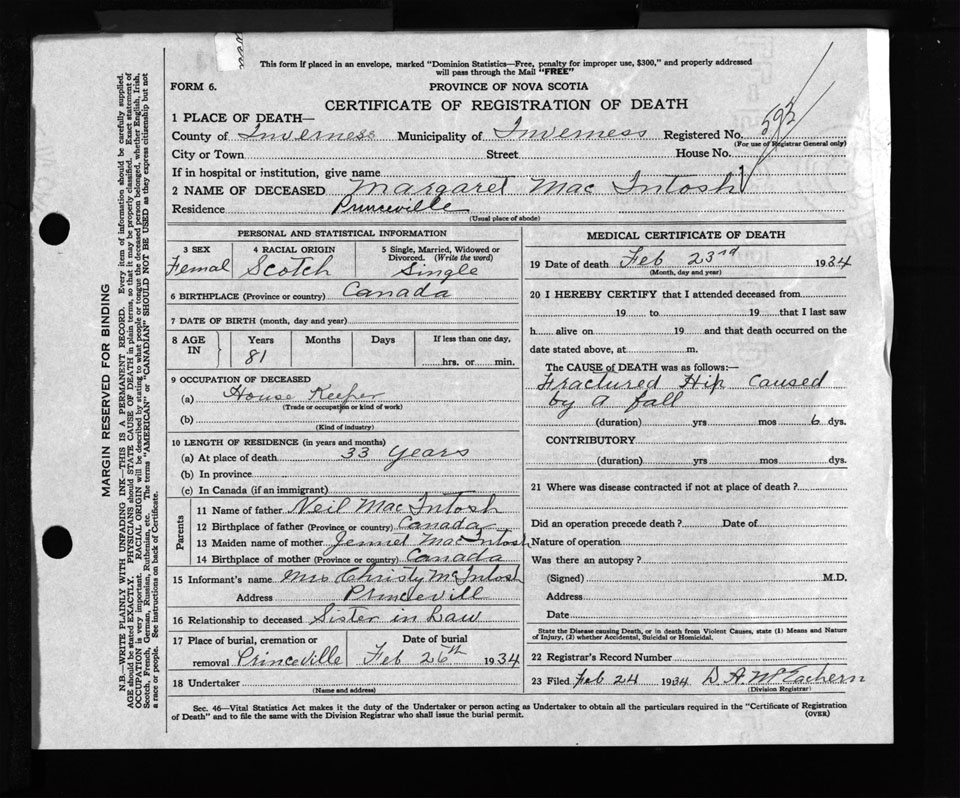 This form if placed in an envelope, marked "Dominion Statistics—Free, penalty for improper use, $300," and properly addressed
will pass through the Mail "FREE"
FORM 6.
PROVINCE OF NOVA SCOTIA
CERTIFICATE OF REGISTRATION OF DEATH
1 PLACE OF DEATH—
County of Inverness Municipality of Inverness Registered No. 592
(For use of Registrar General only)
City or Town Street House No.
If in hospital or institution, give name
2 NAME OF DECEASED Margaret Mac Intosh
Residence Princeville
(Usual place of abode)
PERSONAL AND STATISTICAL INFORMATION
3 SEX 4 RACIAL ORIGIN 5 Single, Married, Widowed or
Divorced. (Write the word)
Femal Scotch Single
6 BIRTHPLACE (Province or country) Canada
7 DATE OF BIRTH (month, day and year)
8 AGE IN Years Months Days If less than one day,
81 hrs. or min.
9 OCCUPATION OF DECEASED
(a) House Keeper
(Trade or occupation or kind of work)
(b)
(Kind of industry)
10 LENGTH OF RESIDENCE (in years and months)
(a) At place of death 33 Years
(b) In province
(c) In Canada (if an immigrant)
Parents
11 Name of father Neil Mac Intosh
12 Birthplace of father (Province or country) Canada
13 Maiden name of mother Jennet Mac Intosh
14 Birthplace of mother (Province or country) Canada
15 Informant's name Mrs Christy McIntosh
Address Princevill
16 Relationship to deceased Sister in Law
17 Place of burial, cremation or Date of burial
removal Princeville Feb 26th 1934
18 Undertaker
(Name and address)
MEDICAL CERTIFICATE OF DEATH
19 Date of death Feb 23rd 1934
(Month, day and year)
20 I HEREBY CERTIFY that I attended deceased from
19 to 19 that I last saw
h alive on 19 and that death occurred on the
date stated above, at m.
The CAUSE of DEATH was as follows:—
Fractured Hip Caused
by a fall
(duration) yrs mos 6 dys.
CONTRIBUTORY
(duration) yrs mos dys.
21 Where was disease contracted if not at place of death?
Did an operation precede death? Date of
Nature of operation
Was there an autopsy?
(Signed) M.D.
Address
Date
State the Disease causing Death, or in death from Violent Causes, state (1) Means and Nature
of Injury, (2) whether Accidental, Suicidal or Homicidal.
22 Registrar's Record Number
23 Filed Feb 24 1934 D. A. McEachern
(Division Registrar)
Sec. 46—Vital Statistics Act makes it the duty of the Undertaker or person acting as Undertaker to obtain all the particulars required in the "Certificate of Registration
of Death" and to file the same with the Division Registrar who shall issue the burial permit.
(OVER)
MARGIN RESERVED FOR BINDING
N.B.—WRITE PLAINLY WITH UNFADING INK—THIS IS A PERMANENT RECORD. Every item of information should be carefully supplied.
AGE should be stated EXACTLY. PHYSICIANS should STATE CAUSE OF DEATH in plain terms, so that it may be properly classified. Exact statement of
OCCUPATION is very important. RACIAL ORIGIN will be described by stating to what people or tongue the deceased person belonged, whether English, Irish,
Scotch, French, German, Russian, Ruthenian, etc. The terms "AMERICAN" or "CANADIAN" SHOULD NOT BE USED as they express citizenship but not
a race or people. See instructions on back of Certificate.